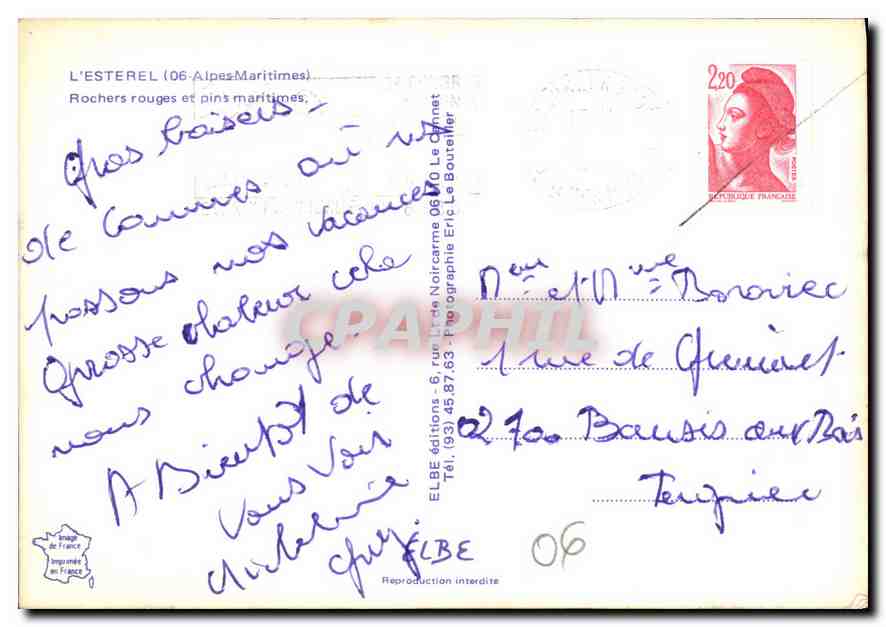 L'ESTEREL (06 Alpes-Maritimes)
Rochers rouges et pins maritimes.
Gros baisers -
de Cannes où ns
passons nos vacances
Grosse chaleur cela
nous change.
A Bientôt de
Vous Voir
Guy.
ELBE éditions - 6, rue Lt de Noircarme 06110 Le Cannet
Tél. (93) 45.87.63 - Photographie Eric Le Bouteiller
2,20
POSTES
REPUBLIQUE FRANÇAISE
et Mme
1 rue de
02700
Tergnier
CPAPHIL
Image
de France
Imprimée
en France
ELBE
06
Reproduction interdite